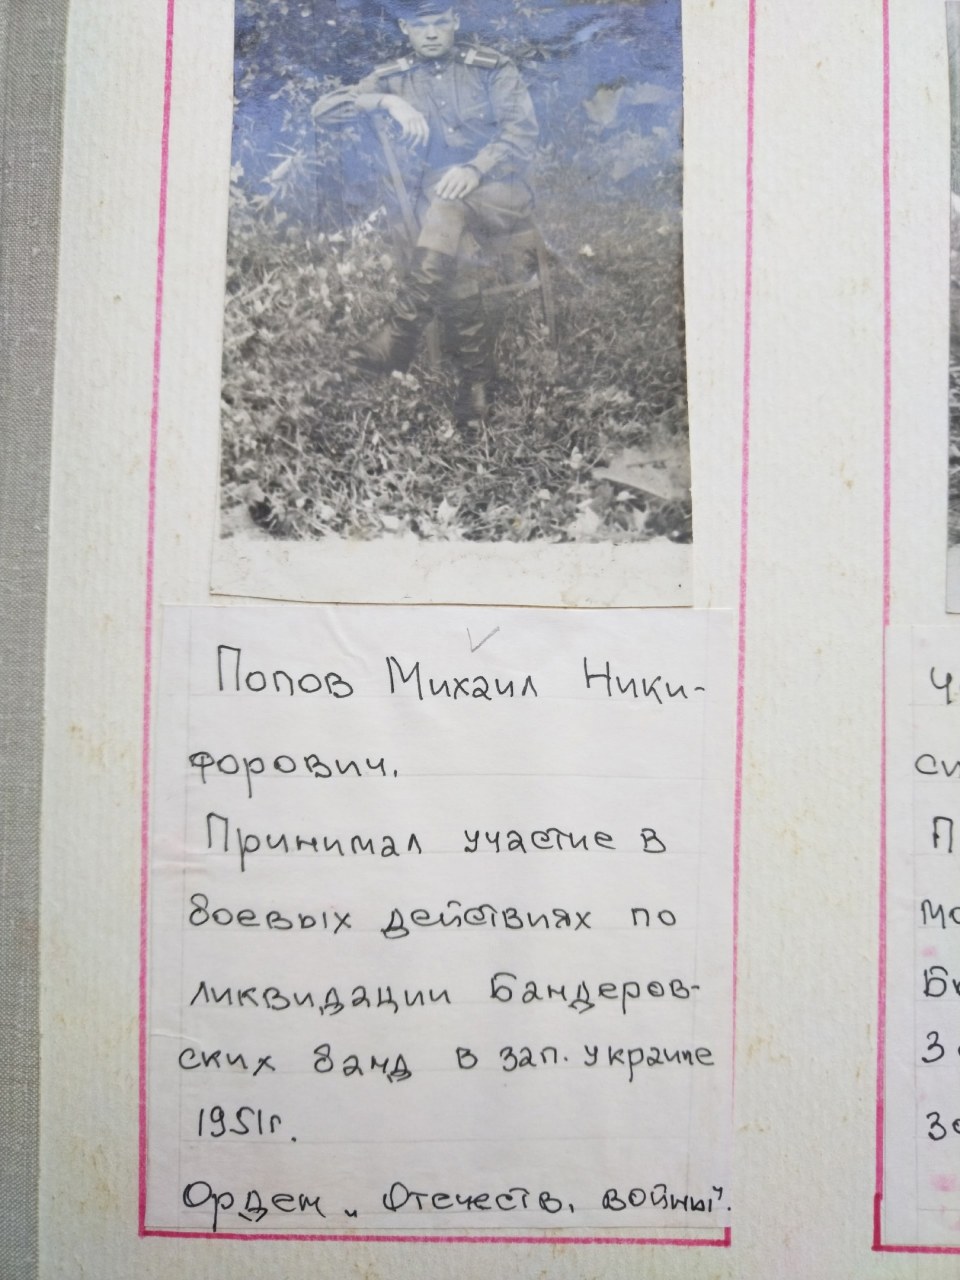 Попов Михаил Ники-
форович.
Принимал участие в
боевых действиях по
ликвидации Бандеров-
ских банд в зап. Украине
1951г.
Орден „Отечеств. войны".